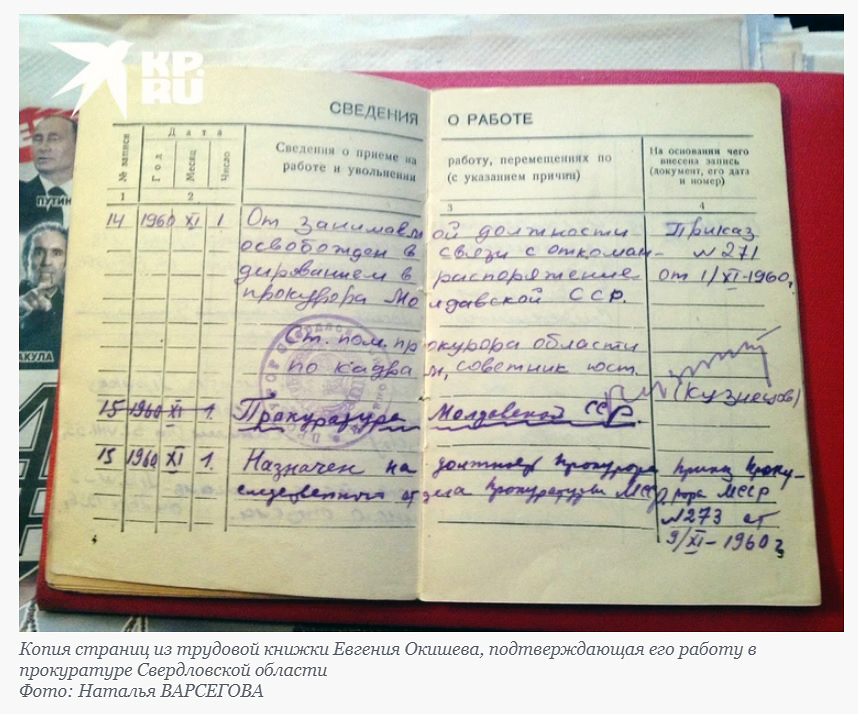 KP.RU
СВЕДЕНИЯ О РАБОТЕ
№ записи
Дата
Год
Месяц
Число
Сведения о приеме на работу, перемещениях по
работе и увольнении (с указанием причин)
На основании чего
внесена запись
(документ, его дата
и номер)
1 2 3 4
14 1960 XI 1 От занимаемой должности Приказ
освобожден в связи с откоман- №271
дированием в распоряжение от 1/XI-1960.
прокурора Молдавской ССР.
Ст. пом. прокурора области
по кадрам, советник юст.
(Кузнецов)
15 1960 XI 1. Прокуратура Молдавской ССР.
15 1960 XI 1. Назначен на должность прокурора Приказ Проку-
следственного отдела Прокуратуры МССР рора МССР
№273 от
9/XI-1960 г
4
ПУТИН
АКУЛА
Копия страниц из трудовой книжки Евгения Окишева, подтверждающая его работу в
прокуратуре Свердловской области
Фото: Наталья ВАРСЕГОВА